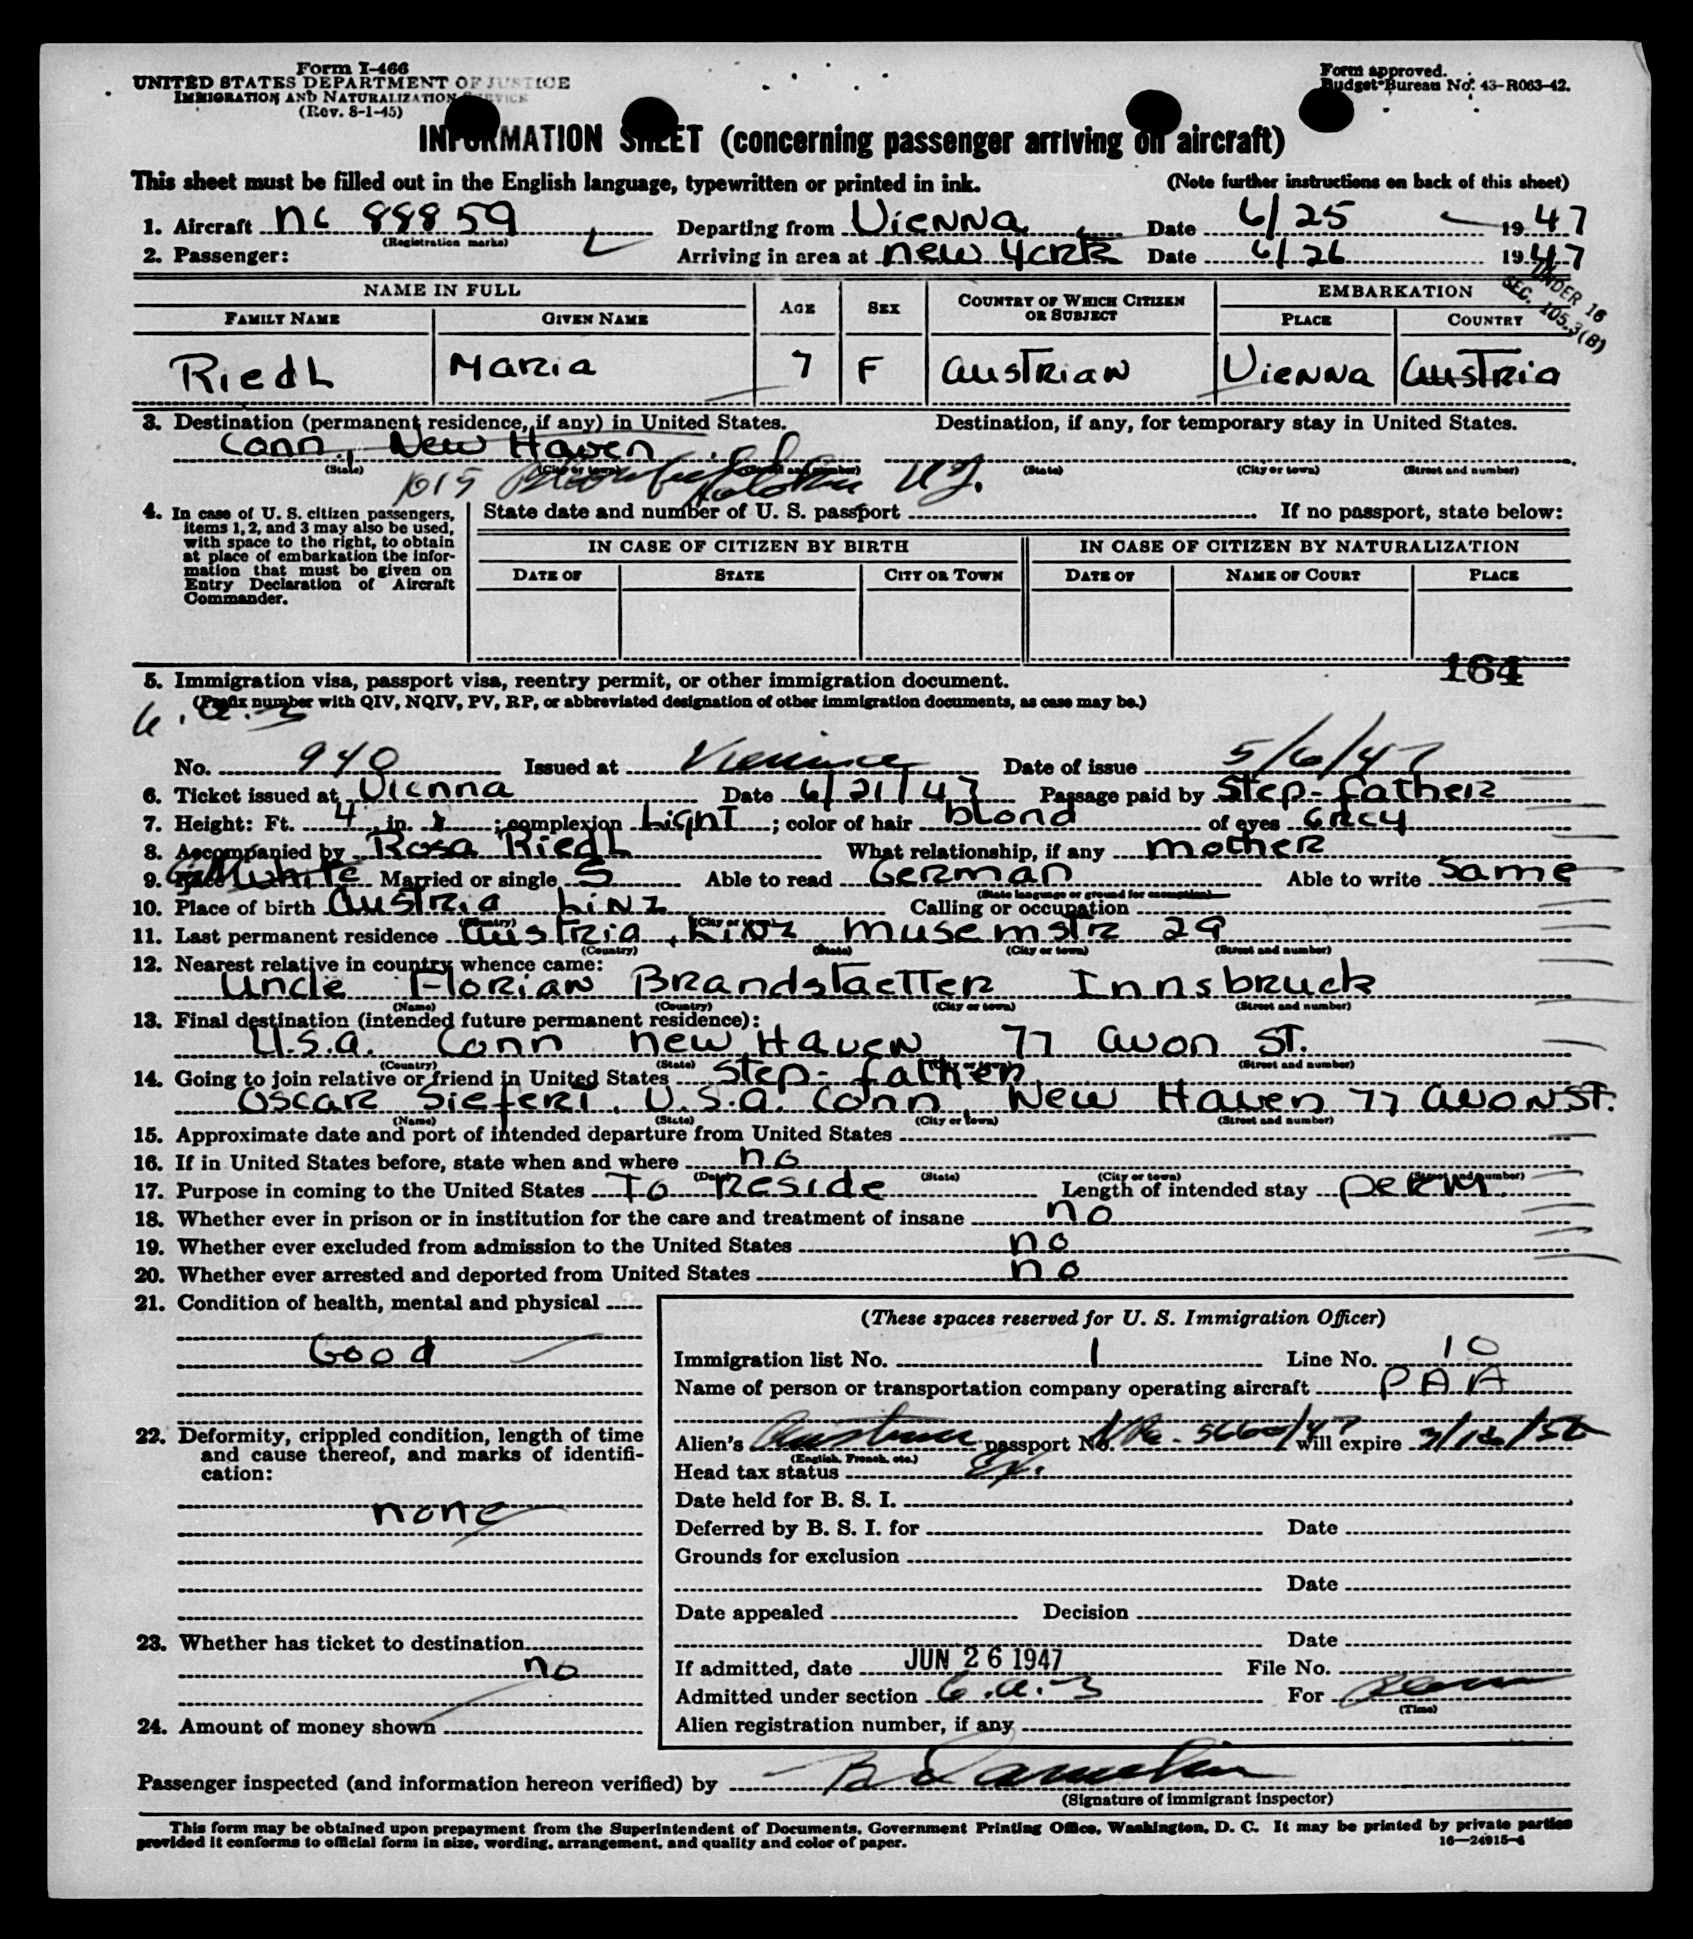 Form I-466
UNITED STATES DEPARTMENT OF JUSTICE
IMMIGRATION AND NATURALIZATION SERVICE
(Rev. 8-1-45)
Form approved.
Budget Bureau No. 43-R063-42.
INFORMATION SHEET (concerning passenger arriving on aircraft)
This sheet must be filled out in the English language, typewritten or printed in ink. (Note further instructions on back of this sheet)
1. Aircraft NC 88859 Departing from Vienna Date 6/25 1947
(Registration marks)
2. Passenger: Arriving in area at New York Date 6/26 1947
UNDER 16
SEC. 105.3(B)
NAME IN FULL AGE SEX COUNTRY OF WHICH CITIZEN OR SUBJECT EMBARKATION
FAMILY NAME GIVEN NAME PLACE COUNTRY
Riedl Maria 7 F Austrian Vienna Austria
3. Destination (permanent residence, if any) in United States. Destination, if any, for temporary stay in United States.
Conn., New Haven
(State) (City or town) (Street and number) (State) (City or town) (Street and number)
1015 Hoboken N.J.
4. In case of U. S. citizen passengers, items 1, 2, and 3 may also be used, with space to the right, to obtain at place of embarkation the information that must be given on Entry Declaration of Aircraft Commander.
State date and number of U. S. passport If no passport, state below:
IN CASE OF CITIZEN BY BIRTH IN CASE OF CITIZEN BY NATURALIZATION
DATE OF STATE CITY OR TOWN DATE OF NAME OF COURT PLACE
164
5. Immigration visa, passport visa, reentry permit, or other immigration document.
(Prefix number with QIV, NQIV, PV, RP, or abbreviated designation of other immigration documents, as case may be.)
6.a.3
No. 940 Issued at Vienna Date of issue 5/6/47
6. Ticket issued at Vienna Date 6/21/47 Passage paid by Step-father
7. Height: Ft. 4 in. 1; complexion Light; color of hair blond of eyes Grey
8. Accompanied by Rosa Riedl What relationship, if any mother
9. Race White Married or single S Able to read German Able to write same
(State language or ground for exemption)
10. Place of birth Austria Linz Calling or occupation
(Country) (City or town)
11. Last permanent residence Austria, Linz Musemstr 29
(Country) (State) (City or town) (Street and number)
12. Nearest relative in country whence came:
Uncle Florian Brandstaetter Innsbruck
(Name) (Country) (City or town) (Street and number)
13. Final destination (intended future permanent residence):
U.S.A. Conn New Haven 77 Avon St.
(Country) (State) (City or town) (Street and number)
14. Going to join relative or friend in United States Step-father
Oscar Siefert, U.S.A. Conn, New Haven 77 Avon St.
(Name) (State) (City or town) (Street and number)
15. Approximate date and port of intended departure from United States
16. If in United States before, state when and where no
(Date) (State) (City or town) (Street and number)
17. Purpose in coming to the United States To Reside Length of intended stay perm.
18. Whether ever in prison or in institution for the care and treatment of insane no
19. Whether ever excluded from admission to the United States no
20. Whether ever arrested and deported from United States no
21. Condition of health, mental and physical
Good
22. Deformity, crippled condition, length of time and cause thereof, and marks of identification:
none
23. Whether has ticket to destination
no
24. Amount of money shown
(These spaces reserved for U. S. Immigration Officer)
Immigration list No. 1 Line No. 10
Name of person or transportation company operating aircraft PAA
Alien's Austrian passport No. 5660/47 will expire
(English, French, etc.)
Head tax status Ex.
Date held for B. S. I.
Deferred by B. S. I. for Date
Grounds for exclusion
Date
Date appealed Decision
Date
If admitted, date JUN 26 1947 File No.
Admitted under section 6.a.3 For Perm
(Time)
Alien registration number, if any
Passenger inspected (and information hereon verified) by
(Signature of immigrant inspector)
This form may be obtained upon prepayment from the Superintendent of Documents, Government Printing Office, Washington, D. C. It may be printed by private parties
provided it conforms to official form in size, wording, arrangement, and quality and color of paper. 16—24915-4